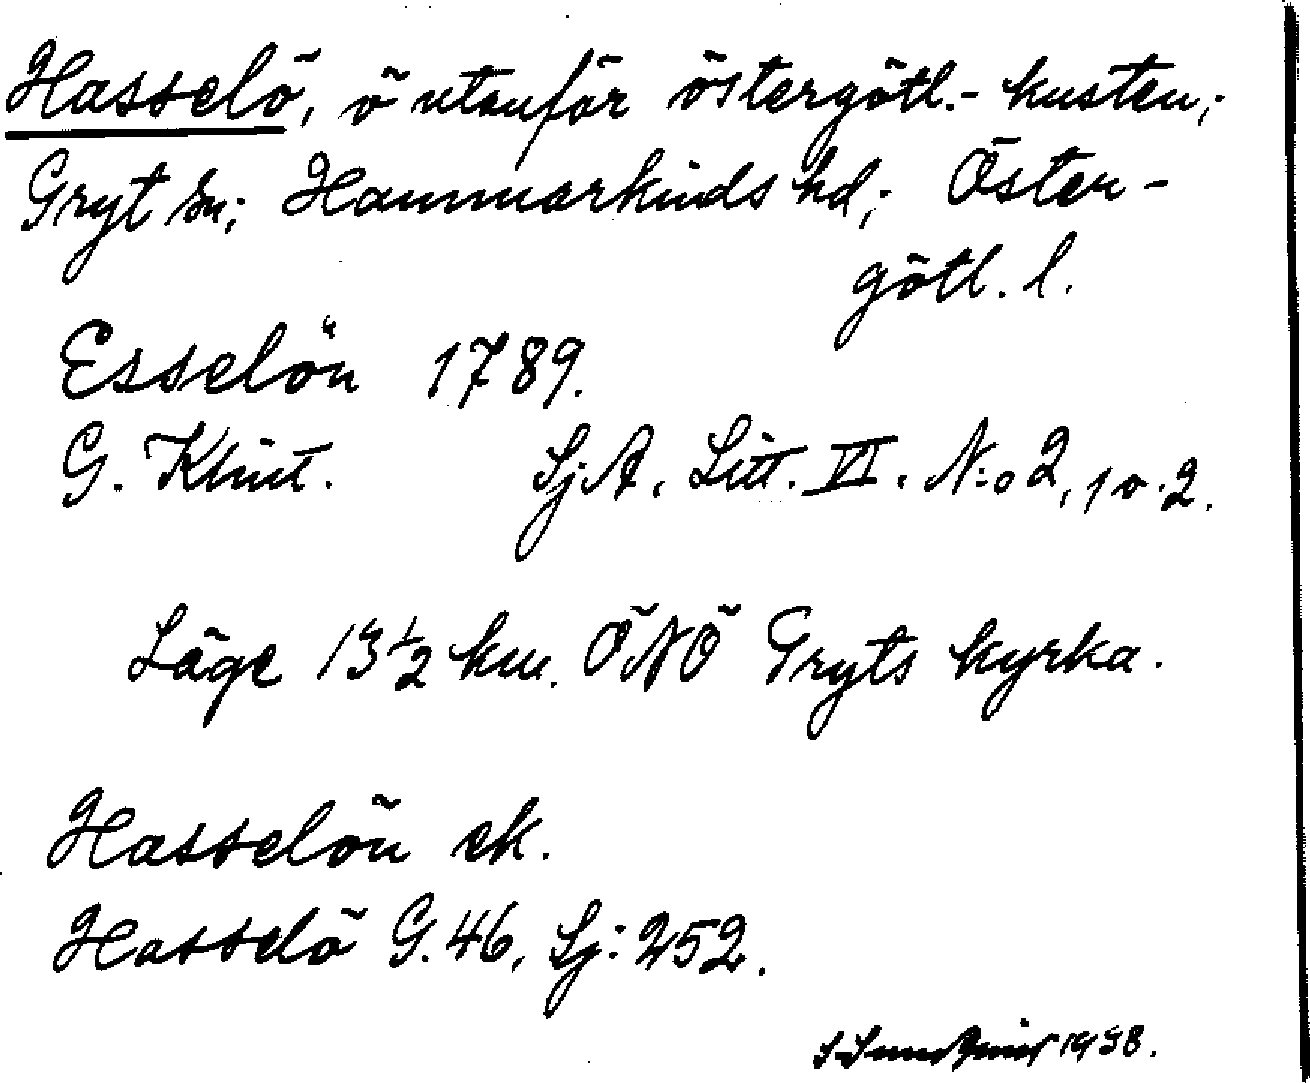 Hasselö, ö utanför östergötl.- kusten;
Gryt sn; Hammarkinds hd; Öster-
götl. l.
Esselön 1789.
G. Klint. Sj. A. Litt. VI. N:o 2, 1 o. 2.
Läge 13 1/2 km. ÖNÖ Gryts kyrka.
Hasselön ek.
Hasselö G. 46, Sj: 252.
1938.